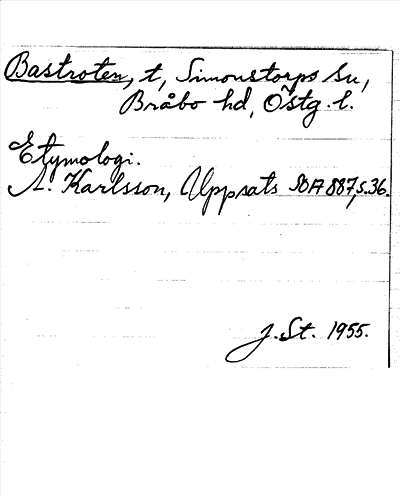 Bastroten, t, Simonstorps sn,
Bråbo hd, Östg. l.
Etymologi.
A. Karlsson, Uppsats SOA 887, s. 36.
J. St. 1955.